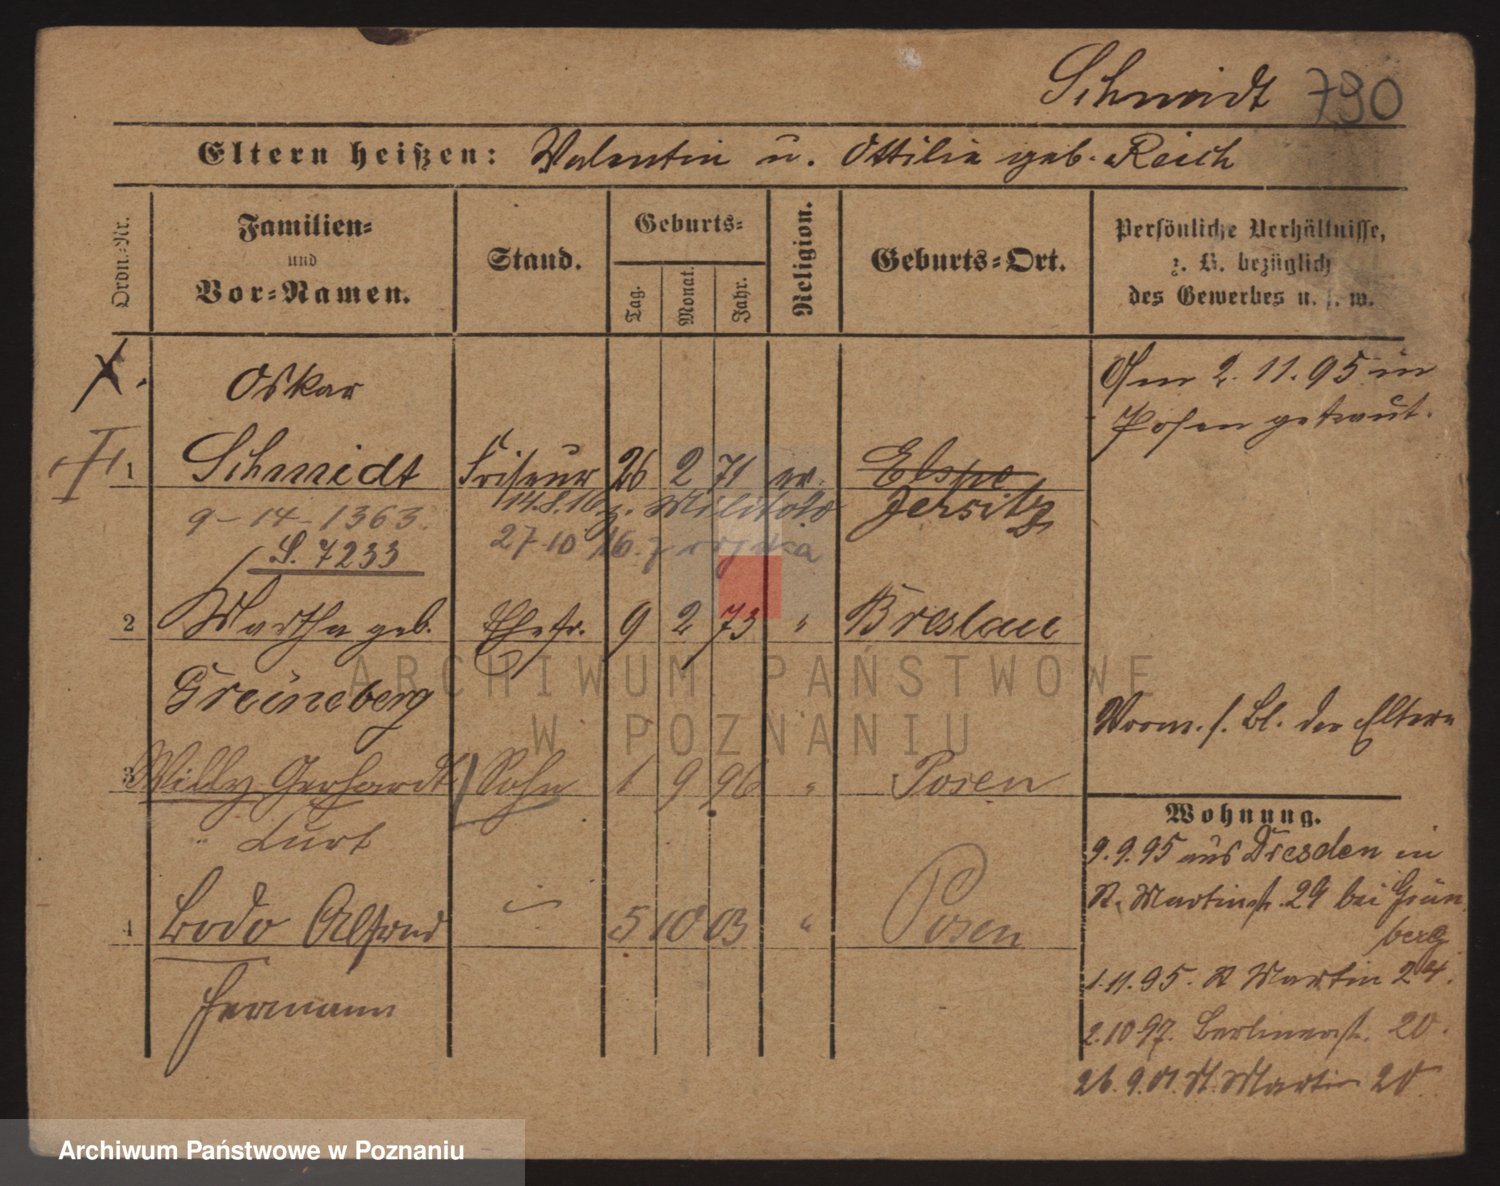 Schmidt 790
Eltern heißen: Valentin u. Ottilie geb. Reich
Ordn.-Nr.
Familien-
und
Vor-Namen.
Stand.
Geburts-
Tag.
Monat.
Jahr.
Religion.
Geburts-Ort.
Persönliche Verhältnisse,
z. B. bezüglich
des Gewerbes u. s. w.
Oskar
Am 2.11.95 in
Posen getraut.
1 Schmidt Friseur 26 2 71 ev.
Jersitz
9-14-1363
14.8.16 z. Militär
S. 7233
27.10 16. z
2 Martha geb. Ehefr. 9 2 73 " Breslau
Greuneberg
Vorm. s. Bl. der Eltern
3 Willy Gerhardt Sohn 1 9 96 " Posen
Curt
4 Bodo Alfred 5 10 03 " Posen
Hermann
Wohnung.
9.9.95 aus Dresden in
St. Martinstr. 29 bei Grün
berg
1.11.95. St Martin 24.
2.10 97. Berlinerstr. 20.
26.9.01. St. Martin 20
ARCHIWUM PAŃSTWOWE
W POZNANIU
Archiwum Państwowe w Poznaniu